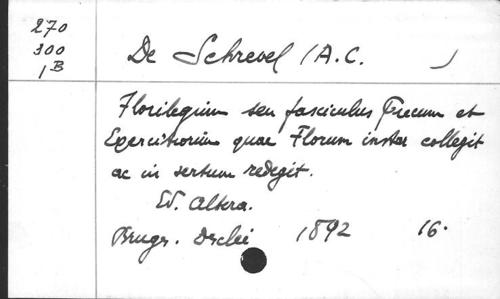 270
300
1B
De Schrevel (A.C. )
Florilegium seu fasciculus Precum et
Exercitiorum quae Florum instar collegit
ac in sertum redegit.
Ed. Altera.
Bruges. Desclée 1892 16.